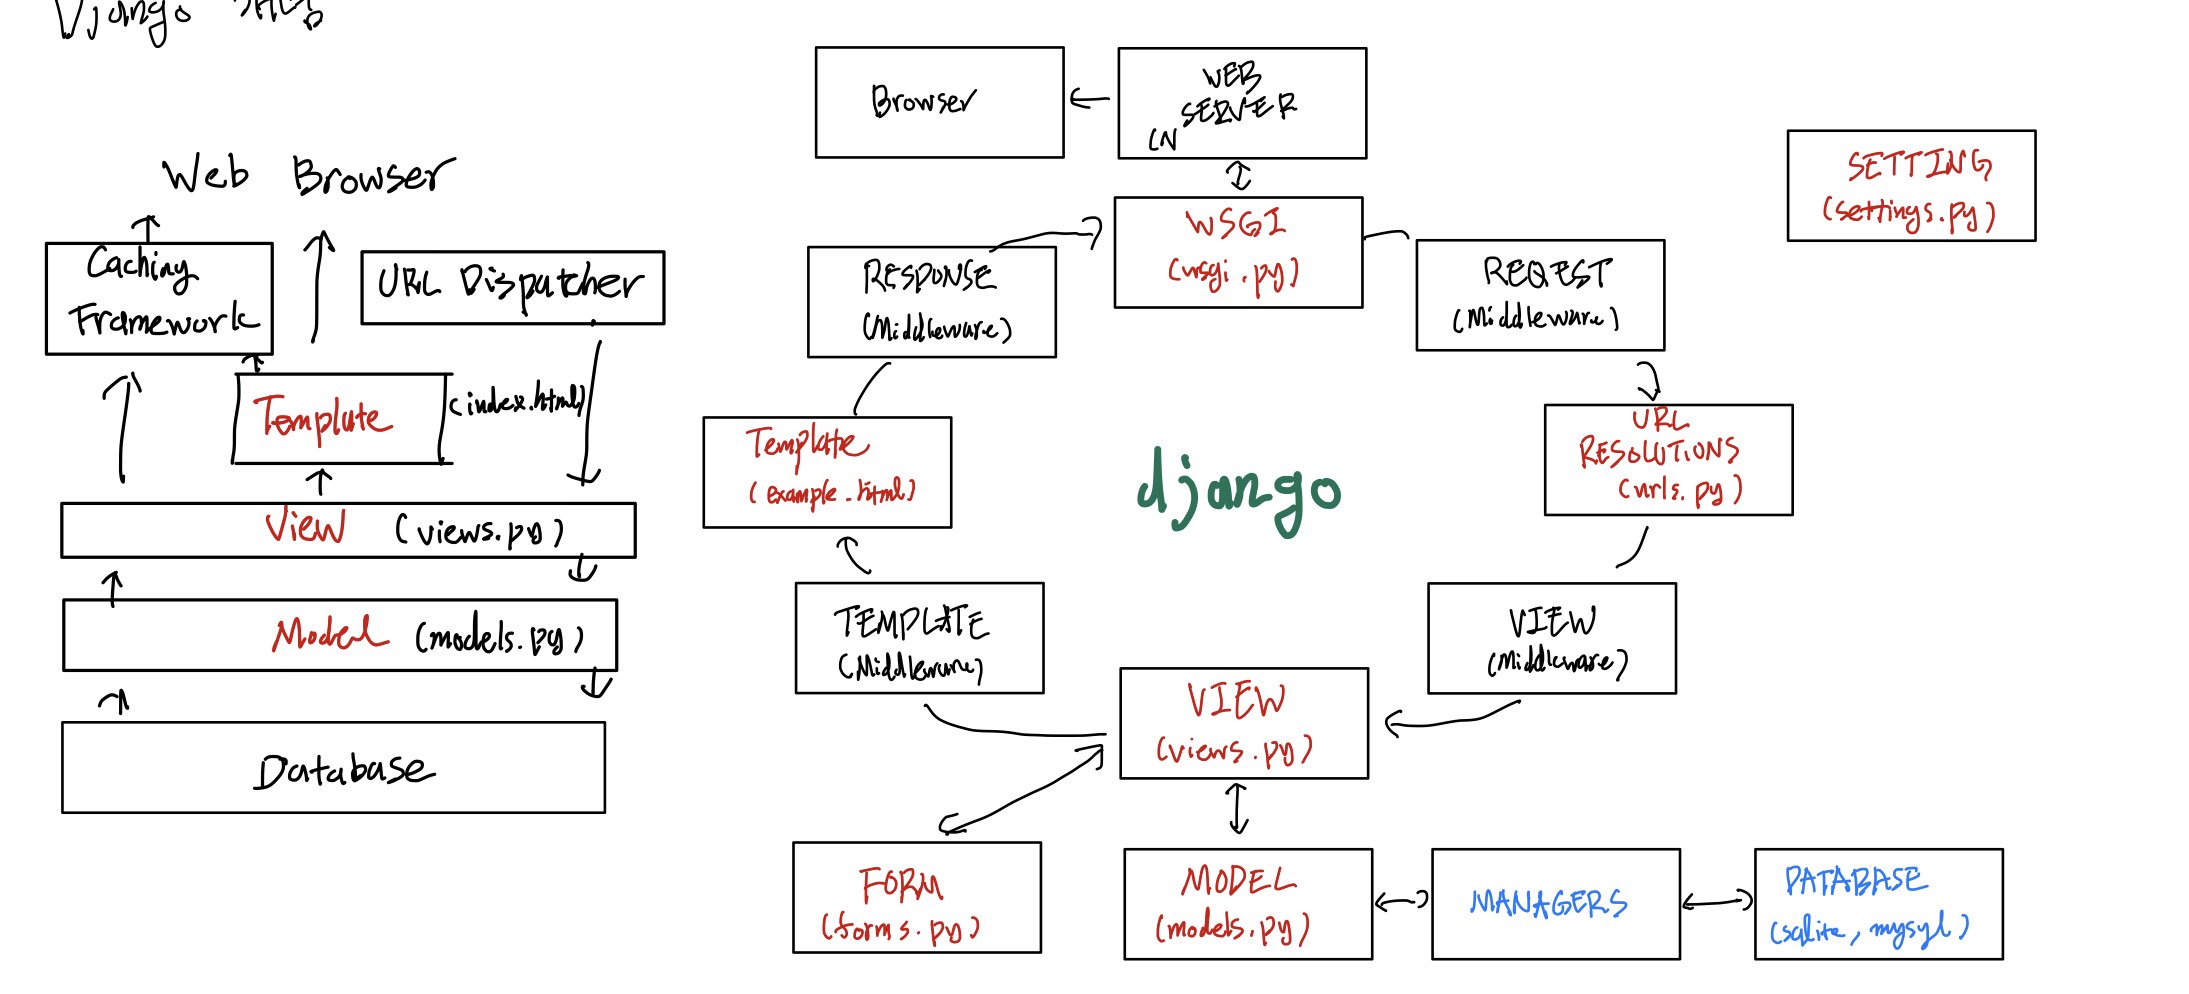 Django
Web Browser
Caching
Framework
URL Dispatcher
Template
(index.html)
View (views.py)
Model (models.py)
Database
Browser
WEB
SERVER
WSGI
(wsgi.py)
RESPONSE
(Middleware)
REQEST
(Middleware)
SETTING
(settings.py)
Template
(example.html)
django
URL
RESOLUTIONS
(urls.py)
TEMPLATE
(Middleware)
VIEW
(Middleware)
VIEW
(views.py)
FORM
(forms.py)
MODEL
(models.py)
MANAGERS
DATABASE
(sqlite, mysql)